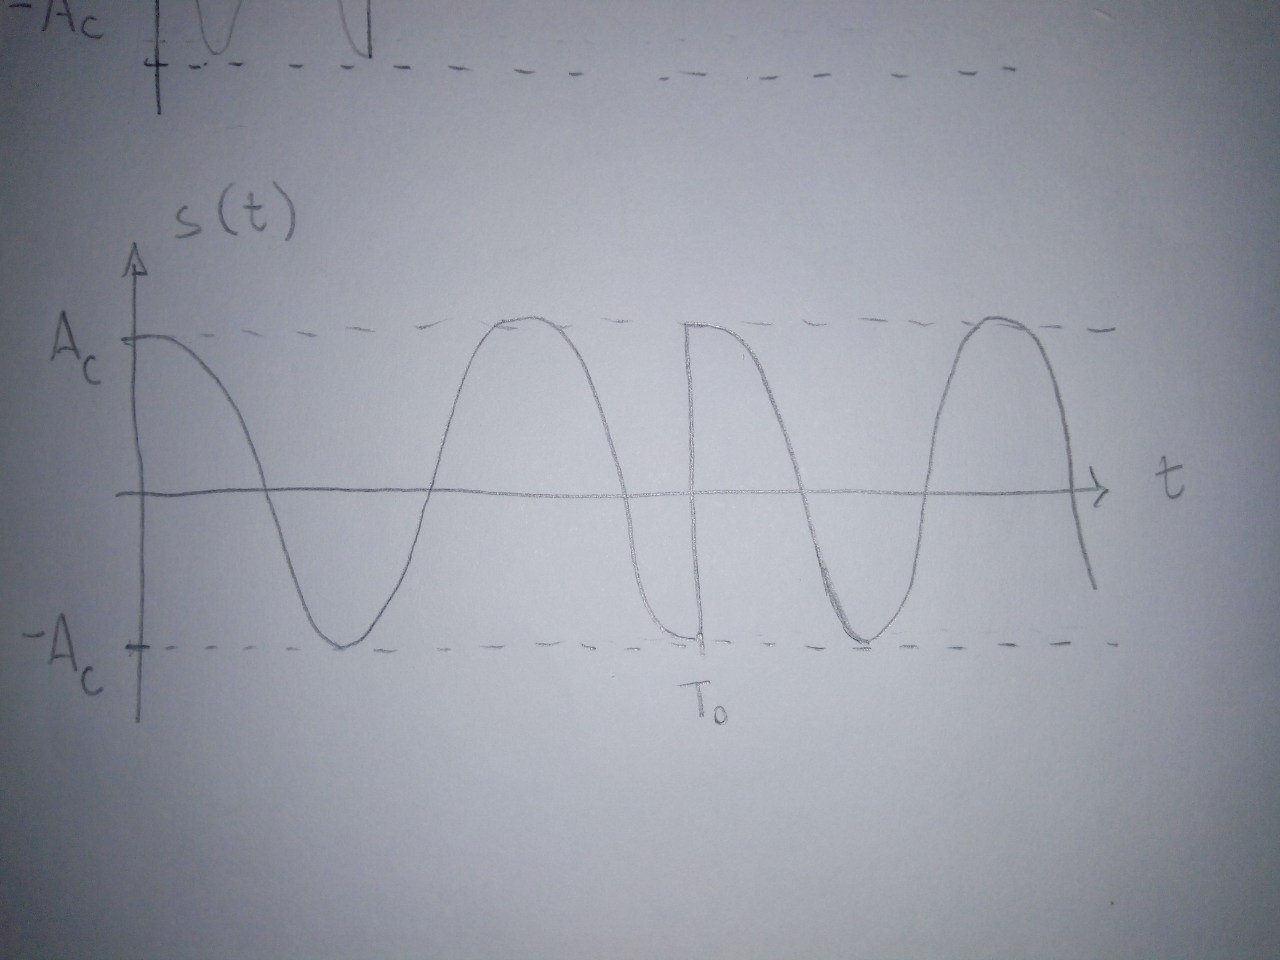 -Ac
s(t)
Ac
t
-Ac
T₀